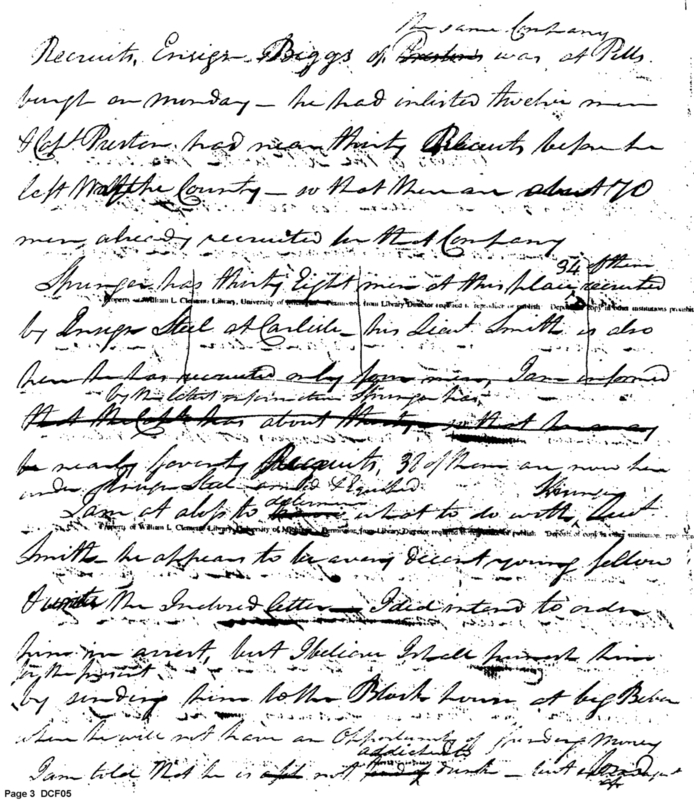 the same Company
Recruits, Ensign Biggs of Preston's was at Pitts
burgh on monday – he had inlisted twelve men
& Capt Preston had near thirty Recruits before he
left the County – so that there are about 70
men already recruited for that Company
34 of them
Springer has thirty Eight men at this place recruited
Property of William L. Clements Library, University of Permission from Library Director required to reproduce or publish Deposit of copy in other institutions prohibit
by Ensign Steel at Carlisle – his Lieut Smith is also
here he has recruited only four men, I am informed
by the latest information Springer has
that the Capt has about thirty so that he may
be nearly seventy Recruits, 38 of them are now here
under Ensign Steel &
I am at a loss to determine what to do with Lieut
Property of William L. Clements Library, University of Permission from Library Director required to reproduce or publish Deposit of copy in other institution
Smith he appears to be a very decent young fellow
& the Inclosed letter – I did intend to order
him in arrest, but I believe I shall punish him
for the present
by sending him to the Block house at big Beaver
where he will not have an Opportunity of spending money
addicted to
I am told that he is not drunk – but
Page 3 DCF05